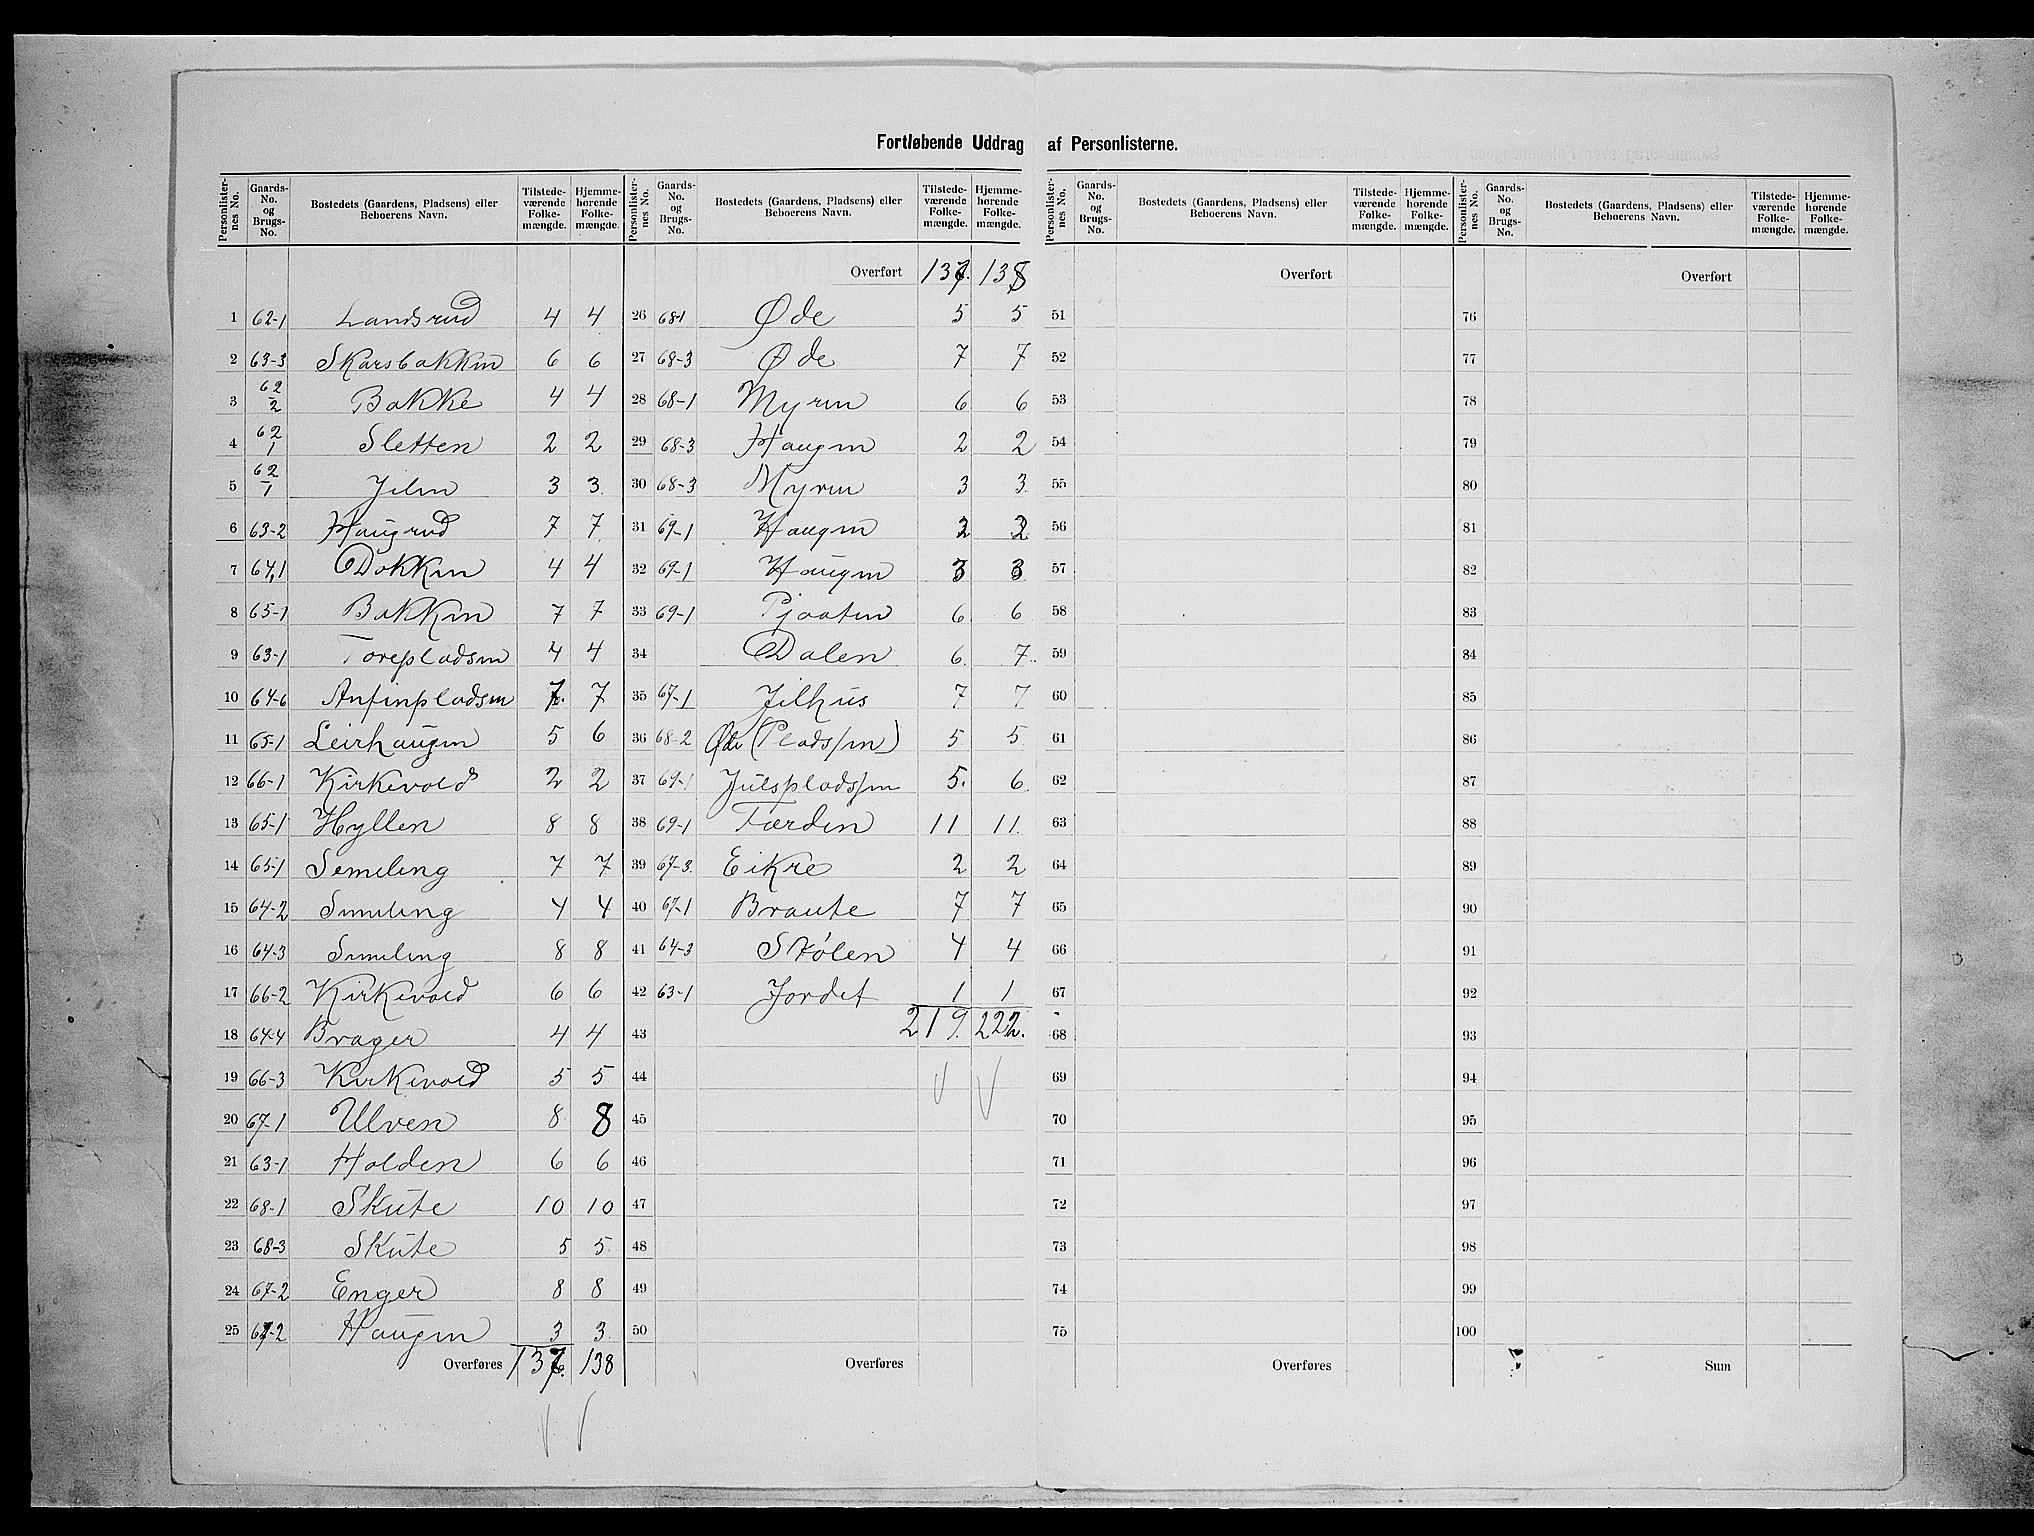 Fortløbende Uddrag af Personlisterne.
Personlister-nes No. Gaards-No. og Brugs-No. Bostedets (Gaardens, Pladsens) eller Beboerens Navn. Tilstede-værende Folke-mængde. Hjemme-hørende Folke-mængde.
1 62-1 Landsrud 4 4
2 63-3 Skarsbakken 6 6
3 62/2 Bakke 4 4
4 62/1 Sletten 2 2
5 62/1 Jilen 3 3
6 63-2 Haugrud 7 7
7 64,1 Dokken 4 4
8 65-1 Bakken 7 7
9 63-1 Torepladsen 4 4
10 64-6 Anfinpladsen 7 7
11 65-1 Leirhaugen 5 6
12 66-1 Kirkevold 2 2
13 65-1 Hyllen 8 8
14 65-1 Semeling 7 7
15 64-2 Semeling 4 4
16 64-3 Semeling 8 8
17 66-2 Kirkevold 6 6
18 64-4 Brager 4 4
19 66-3 Kirkevold 5 5
20 67-1 Ulven 8 8
21 63-1 Holden 6 6
22 68-1 Skute 10 10
23 68-3 Skute 5 5
24 67-2 Enger 8 8
25 67-2 Haugen 3 3
Overføres 137. 138
Personlister-nes No. Gaards-No. og Brugs-No. Bostedets (Gaardens, Pladsens) eller Beboerens Navn. Tilstede-værende Folke-mængde. Hjemme-hørende Folke-mængde.
Overført 137. 138
26 68-1 Øde 5 5
27 68-3 Øde 7 7
28 68-1 Myren 6 6
29 68-3 Haugen 2 2
30 68-3 Myren 3 3
31 69-1 Haugen 2 2
32 69-1 Haugen 3 3
33 69-1 Pjaaten 6 6
34 Dalen 6. 7.
35 67-1 Jilhus 7 7
36 68-2 Øde (Pladsen) 5 5
37 69-1 Julspladsen 5. 6
38 69-1 Færden 11 11.
39 67-3. Eikre 2 2
40 67-1 Braute 7 7
41 64-3 Stølen 4 4
42 63-1 Jordet 1 1
43 219. 222.
44
45
46
47
48
49
50
Overføres
Personlister-nes No. Gaards-No. og Brugs-No. Bostedets (Gaardens, Pladsens) eller Beboerens Navn. Tilstede-værende Folke-mængde. Hjemme-hørende Folke-mængde.
Overført
51
52
53
54
55
56
57
58
59
60
61
62
63
64
65
66
67
68
69
70
71
72
73
74
75
Overføres
Personlister-nes No. Gaards-No. og Brugs-No. Bostedets (Gaardens, Pladsens) eller Beboerens Navn. Tilstede-værende Folke-mængde. Hjemme-hørende Folke-mængde.
Overført
76
77
78
79
80
81
82
83
84
85
86
87
88
89
90
91
92
93
94
95
96
97
98
99
100
Sum